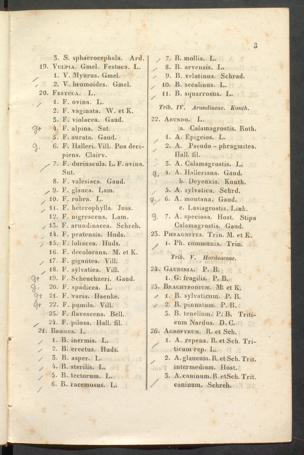 3
3. S. sphaerocephala. Ard.
19. VULPIA. Gmel. Festuca. L.
1. V. Myurus. Gmel.
2. V. bromoides. Gmel.
20. FESTUCA. L.
1. F. ovina. L.
2. F. vaginata. W. et K.
3. F. violacea. Gaud.
4. F. alpina. Sut.
5. F. aurata. Gaud.
6. F. Halleri. Vill. Pos deci-
piens. Clairv.
7. F. duriuscula. L. F. ovina.
Sut.
8. F. valesiaca. Gaud.
9. F. glauca. Lam.
10. F. rubra. L.
11. F. heterophylla. Jess.
12. F. nigrescens. Lam.
13. F. arundinacea. Schreb.
14. F. pratensis. Huds.
15. F. loliacea. Huds.
16. F. decolorans. M. et K.
17. F. gigantea. Vill.
18. F. sylvatica. Vill.
19. F. Scheuchzeri. Gaud.
20. F. spadicea. L.
21. F. varia. Haenke.
22. F. pumila. Vill.
23. F. flavescens. Bell.
24. F. pilosa. Hall. fil.
21. BROMUS. L.
1. B. inermis. L.
2. B. erectus. Huds.
3. B. asper. L.
4. B. sterilis. L.
5. B. tectorum. L.
6. B. racemosus. L.
7. B. mollis. L.
8. B. arvensis. L.
9. B. velutinus. Schrad.
10. B. secalinus. L.
11. B. squarrosus. L.
Trib. IV. Arundineae. Kunth.
22. ARUNDO. L.
a. Calamagrostis. Roth.
1. A. Epigeios. L.
2. A. Pseudo-phragmites.
Hall. fil.
3. A. Calamagrostis. L.
4. A. Halleriana. Gaud.
b. Deyeuxia. Kunth.
5. A. sylvatica. Schrd.
6. A. montana. Gaud.
c. Lasiagrostis. Link.
7. A. speciosa. Host. Stipa
Calamagrostis. Gaud.
23. PHRAGMITES. Trin. M. et K.
1. Ph. communis. Trin.
Trib. V. Hordeaceae.
24. GAUDINIA. P. B.
1. G. fragilis. P. B.
25. BRACHYPODIUM. M. et K.
1. B. sylvaticum. P. B.
2. B. pinnatum. P. B.
3. B. tenellum. P. B. Triti-
cum Nardus. D. C.
26. AGROPYRUM. R. et Sch.
1. A. repens. R. et Sch. Tri-
ticum rep. L.
2. A. glaucum. R. et Sch. Trit.
intermedium. Host.
3. A. caninum. R. et Sch. Trit.
caninum. Schreb.